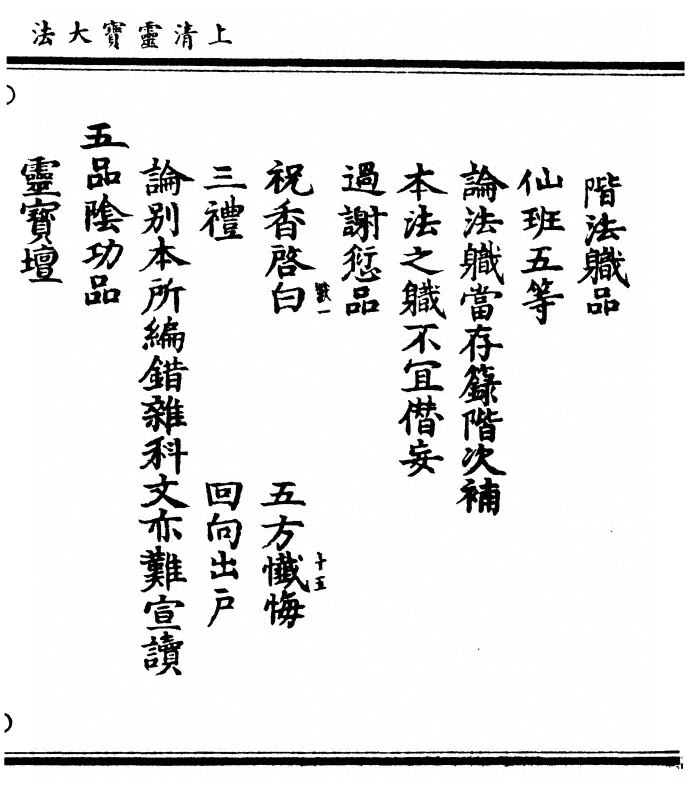 上清靈寶大法
階法軄品
仙班五等
論法軄當存籙階次補
本法之軄不冝僣妄
過謝愆品
祝香啓白 一 五方懺悔 十五
三禮 回向出戶
論別本所編錯雜科文亦難宣讀
五品陰功品
靈寶壇